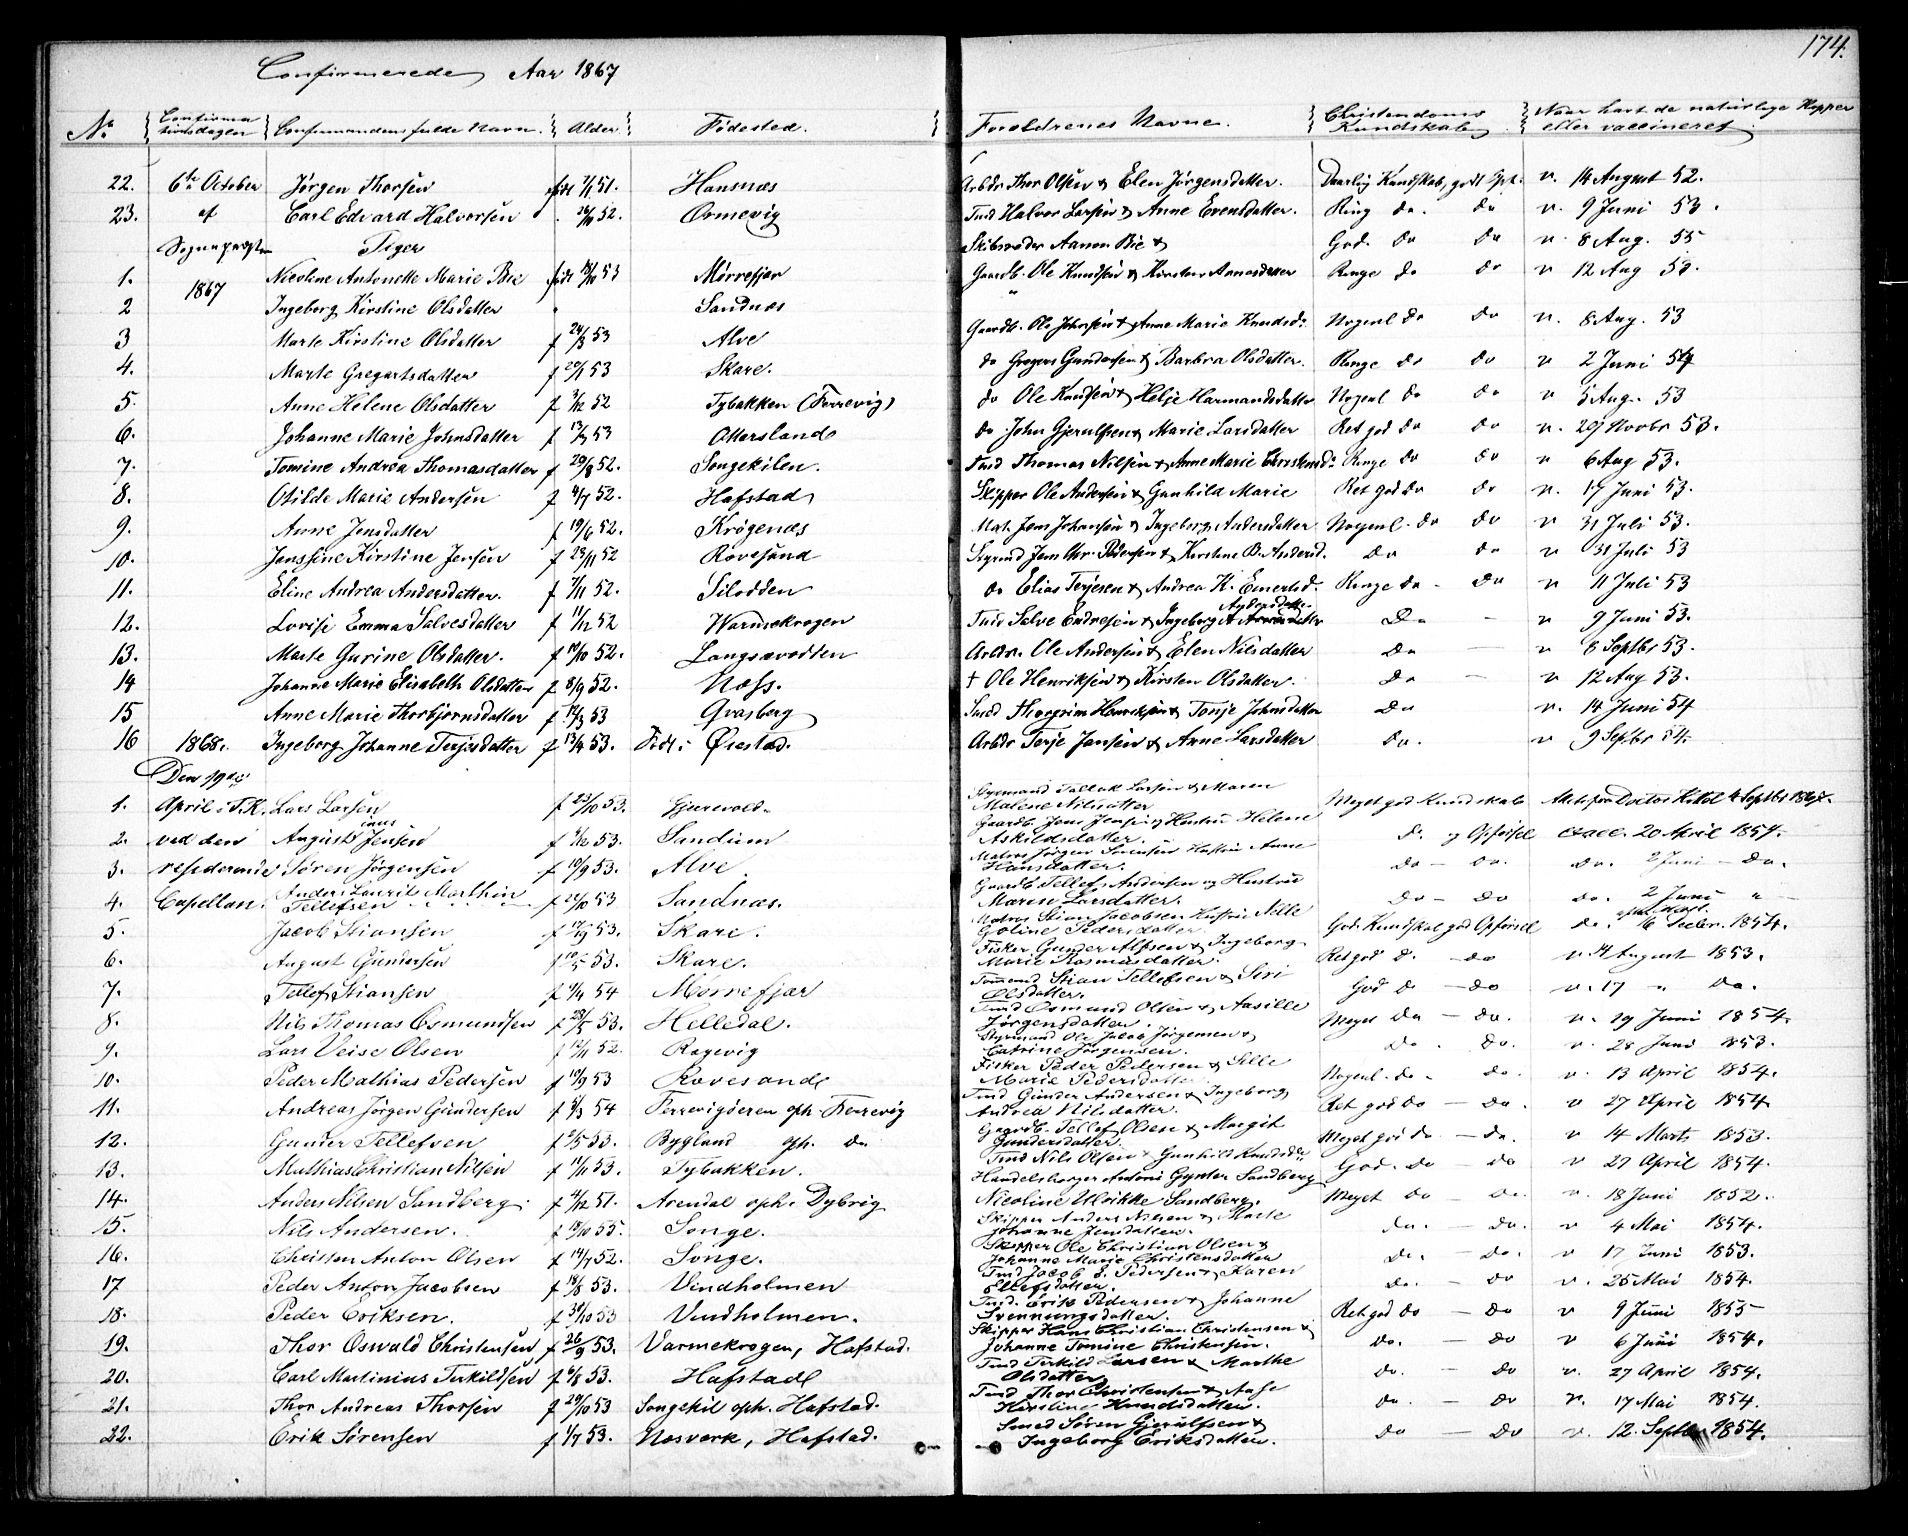 174.
Confirmerede Aar 1867
No Confirmationsdagen Confirmandens fulde Navn. Alder. Fødested. Forældrenes Navne. Christendoms Kundskab Naar havt de naturlige Kopper eller vaccineret
22. 6te October Jørgen Thorsen født 7/1 51. Hansnæs Arbdr Thor Olsen & Elen Jørgensdatter. Daarlig Kundskab, godt v. 14 August 52.
23. af Carl Edvard Halvorsen 52. Ormevig Tmd Halvor Larsen & Anne Evensdatter. Ring do. do v. 9 Juni 53.
Sognepræsten Piger Skibsreder Aanon Bie & God. do do v. 8 Aug. 55
1. 1867 Nicoline Antonette Marie Bie født 53 Mörrefjær Gaardb. Ole Knudsen & Kirsten Ringe do do v 12 Aug
2 Ingeborg Kirstine Olsdatter Sandnæs
3 Marte Kirstine Olsdatter f 24/3 53 Alve Gaardb. Ole Johnsen & Anne Marie Knudsd. Nogenl do do v. 8 Aug. 53
4. Marte Gregartsdatter f 53 Skare. do Gregers Gundersen & Barbra Olsdatter. Ringe do do v 2 Juni 54
5. Anne Helene Olsdatter f 3/12 52 Tybakken (Færrevig) do Ole Knudsen & Helje Harmandsdatter Nogenl do do v 5 Aug. 53
6. Johanne Marie Johnsdatter f 13/3 53 Ottersland do John Gjerulfsen & Marie Larsdatter Ret god do do v. 29 Novbr 53.
7. Tomine Andrea Thomasdatter f 29/8 52. Songekilen. Tmd Thomas Nilsen & Anne Marie Ringe do do v 6 Aug 53.
8. Otilde Marie Andersen f 4/7 52. Hafstad Skipper Ole Andersen & Gunhild Marie Ret god do do v. 17 Juni 53.
9. Anne Jensdatter f 19/6 52. Krøgenæs Mat. Jens Johansen & Ingeborg Andersdatter Nogenl. do do v 31 Juli 53.
10. Jenssine Kirstine Jensen f 23/11 52 Rovesund Styrmd Jens Chr. Pedersen & Kirstine B. Andersd. do do v 31 Juli 53
11. Eline Andrea Andersdatter. f 7/11 52. Silodden do Elias Terjesen & Andrea K. Ringe do. do v 11 Juli 53
12. Lovise Emma Salvesdatter f 11/12 52 Warmekrogen Tmd Salve Endresen & Ingeborg A Andersdatter do - v 9 Juni 53.
13. Marte Gurine Olsdatter. f 19/10 52. Langsævodden Arbdr. Ole Andersen & Elen Nilsdatter do - v 8 Septbr 53.
14 Johanne Marie Elisabeth Olsdatter f 8/9 52. Næss. † Ole Henriksen & Kirsten Olsdatter. do - v 12 Aug 53.
15 Anne Marie Thorbjørnsdatter f 12/3 53 Gvasberg Smed Thorgrim Henriksen & Tonje Johnsdatter do v. 14 Juni 54
16 1868. Ingeborg Johanne Terjesdatter f 13/4 53. Født: Øiestad. Arbdr Terje Jansen & Anne Larsdatter do. v 9 Septbr 54.
Den 19de
1. April i T.K. Lars Larsen f 23/10 53. Gjerevold. Styrmand Tallak Larsen & Maren Malene Nilsdatter Meget god Kundskab Attest fra Doctor 4 Septbr 1867.
2. ved den Augustinus Jensen f 7/12 53. Sandum Gaardb. Jens Jensen og Hustru Helene Askildsdatter. do. og Opførsel vacc. 20 April 1854.
3. residerende Søren Jørgensen f 10/9 53. Alve Matros Jørgen Sørensen Hustru Anne Hansdatter. do - do. do. 2 Juni - do.
4. Capellan. Anders Laurits Marthin Tellefsen f 53 Sandnæs. Gaardb. Tellef Andersen og Hustru Maren Larsdatter. do - do do. 2 Juni "
5. Jacob Stiansen f 53. Skare. Matros Stian Jacobsen Hustru Nille Goline Pedersdatter God. Kundskab god Opførsel do. 16 Decbr. 1854.
6. August Gundersen f 53. Skare. Fisker Gunder Alfsen & Ingeborg Marie Rasmusdatter. Ret god do. - do v 14 August 1853.
7. Tellef Stiansen f 54 Mörrefjær Tømmermd Stian Tellefsen & Siri Olsdatter. God do - do v. 17 " do.
8. Nils Thomas Osmundsen f 28/5 53. Helledal. Tmd Osmund Olsen & Aasille Jørgensdatter. Meget do - do. v. 19 Juni 1854.
9. Lars Veise Olsen f 52. Rægevig Styrmand Ole Jacob Jørgensen & Catrine Jørgensen. do. do. v. 28 Juni 1853.
10. Peder Mathias Pedersen f 19/9 53 Rovesand Fisker Peder Pedersen & Sille Marie Pedersdatter Nogenl. do. do. v. 13 April 1854.
11. Andreas Jørgen Gundersen f 54 Færrevigöeren oph. Færrevig Tmd Gunder Andersen & Ingeborg Andrea Nilsdatter. Ret god do - do. v 27 April 1854
12. Gunder Tellefsen f 53. Bygland oph. do Gaardb. Tellef Olsen & Margit Gundersdatter. Meget god do - do. v 14 Marts 1853.
13. Mathias Christian Nilsen f 11/11 53. Tybakken. Tmd Nils Olsen & Gunhild Knudsdtr God. do do v 27 April 1854.
14. Anders Nilsen Sandberg f 51. Arendal oph. Dybvig Handelsborger Antoni Gynter Sandberg Nicoline Ulrikke Sandberg. Meget do - do. v. 18 Juni 1852.
15. Nils Andersen. f 55. Songe. Skipper Anders Nilsen & Marte Johanne Jensdatter. do. - do. v 4 Mai 1854.
16. Christen Anton Olsen f 14/7 52. Songe. Skipper Ole Christian Olsen & Johanne Marie Christensdatter do. do. v 17 Juni 1853.
17 Peder Anton Jacobsen f 18/8 53. Vindholmen Tmd Jacob E. Pedersen & Karen Ellefsdatter. do. - do v. 25 Mai 1854.
18. Peder Eriksen. f 30/10 53 Vindholmen. Tmd. Erik Pedersen & Johanne Svenningsdatter. Ret god do - do v 9 Juni 1855
19. Thor Oswald Christensen f 26/9 53. Varmekrogen, Hafstad. Skipper Hans Christian Christensen & Johanne Tomine Christensen. do. - do v 6 Juni 1854.
20. Carl Martinius Terkildsen f 6/8 53. Hafstad Tmd Terkild Larsen & Marthe Olsdatter do. do v. 27 April 1854.
21. Thor Andreas Thorsen f 29/10 53 Songekil oph. Hafstad. Tmd Thor Christensen & Aase Kirstine Knudsdatter. do. - do v. 17 Mai 1854.
22. Erik Sørensen f 1/7 53. Næsverk, Hafstad. Smed Søren Gjerulfsen & Ingeborg Eriksdatter. do - do v. 12. Septbr 1854.